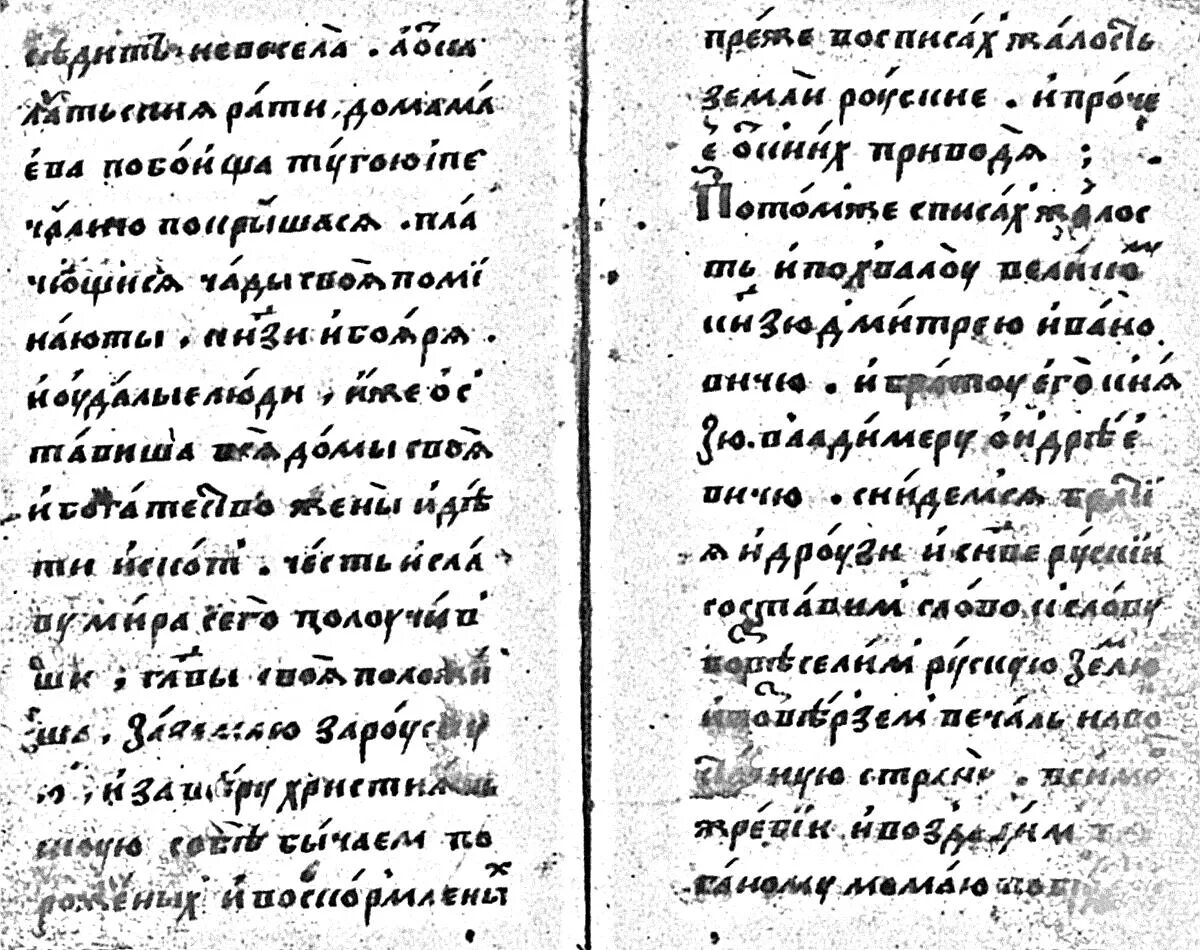 сѣдитъ невесела . а ѿ ка
латьскиꙗ рати, до мама
ева побоища тугою и пе
чалию покрышасѧ . пла
чющисѧ чады своꙗ поми
наюты . кнѧзи и боꙗрѧ .
и оудалые люди , иже ос
тавиша всѧ домы своꙗ
и богатество жены и дѣ
ти и скот . честь и сла
ву мира сего получив
ши ; главы своꙗ положи
ша . за землю за роускую
и за вѣру христиꙗнь
скую собѣ бычаем по
роженых и воскормленых
преже восписах жалость
земли роуские . и проче
е ѿ кних приводѧ ;
Потом же списах жалос
ть и похвалоу великому
кнѧзю дмитрею ивано
вичю . и братоу его кнѧ
зю . владимеру ондрѣе
вичю . снидемсѧ братї
ꙗ и дроузи и сынове рускии
составим слово к слову
возвеселим рускую землю
и ѿвѣрзем печаль на во
сточную страну . в симо
жребии и воздадим
ганому момаю побе